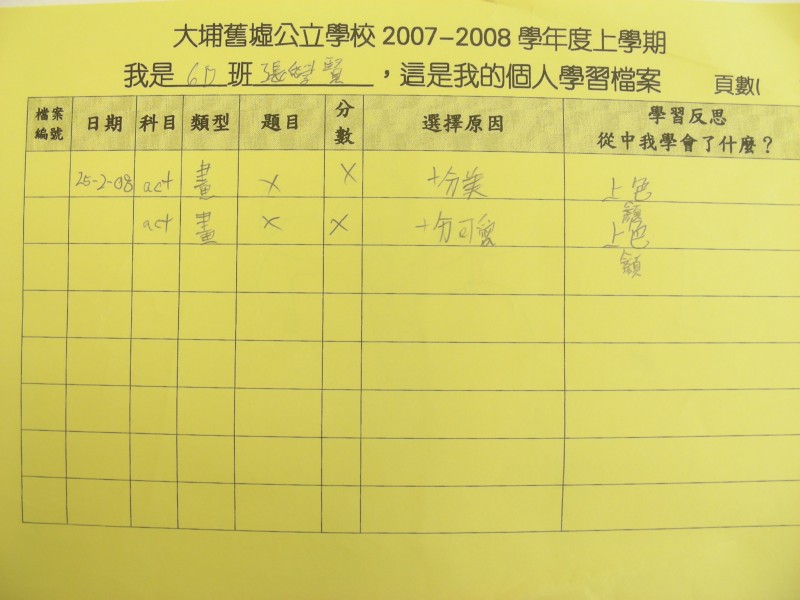 大埔舊墟公立學校 2007-2008 學年度上學期
我是 6D 班 張 賢 ，這是我的個人學習檔案 頁數1
檔案編號 日期 科目 類型 題目 分數 選擇原因 學習反思 從中我學會了什麼？
25-2-08 act 畫 X X 十分美 上色
act 畫 X X 十分可愛 上色